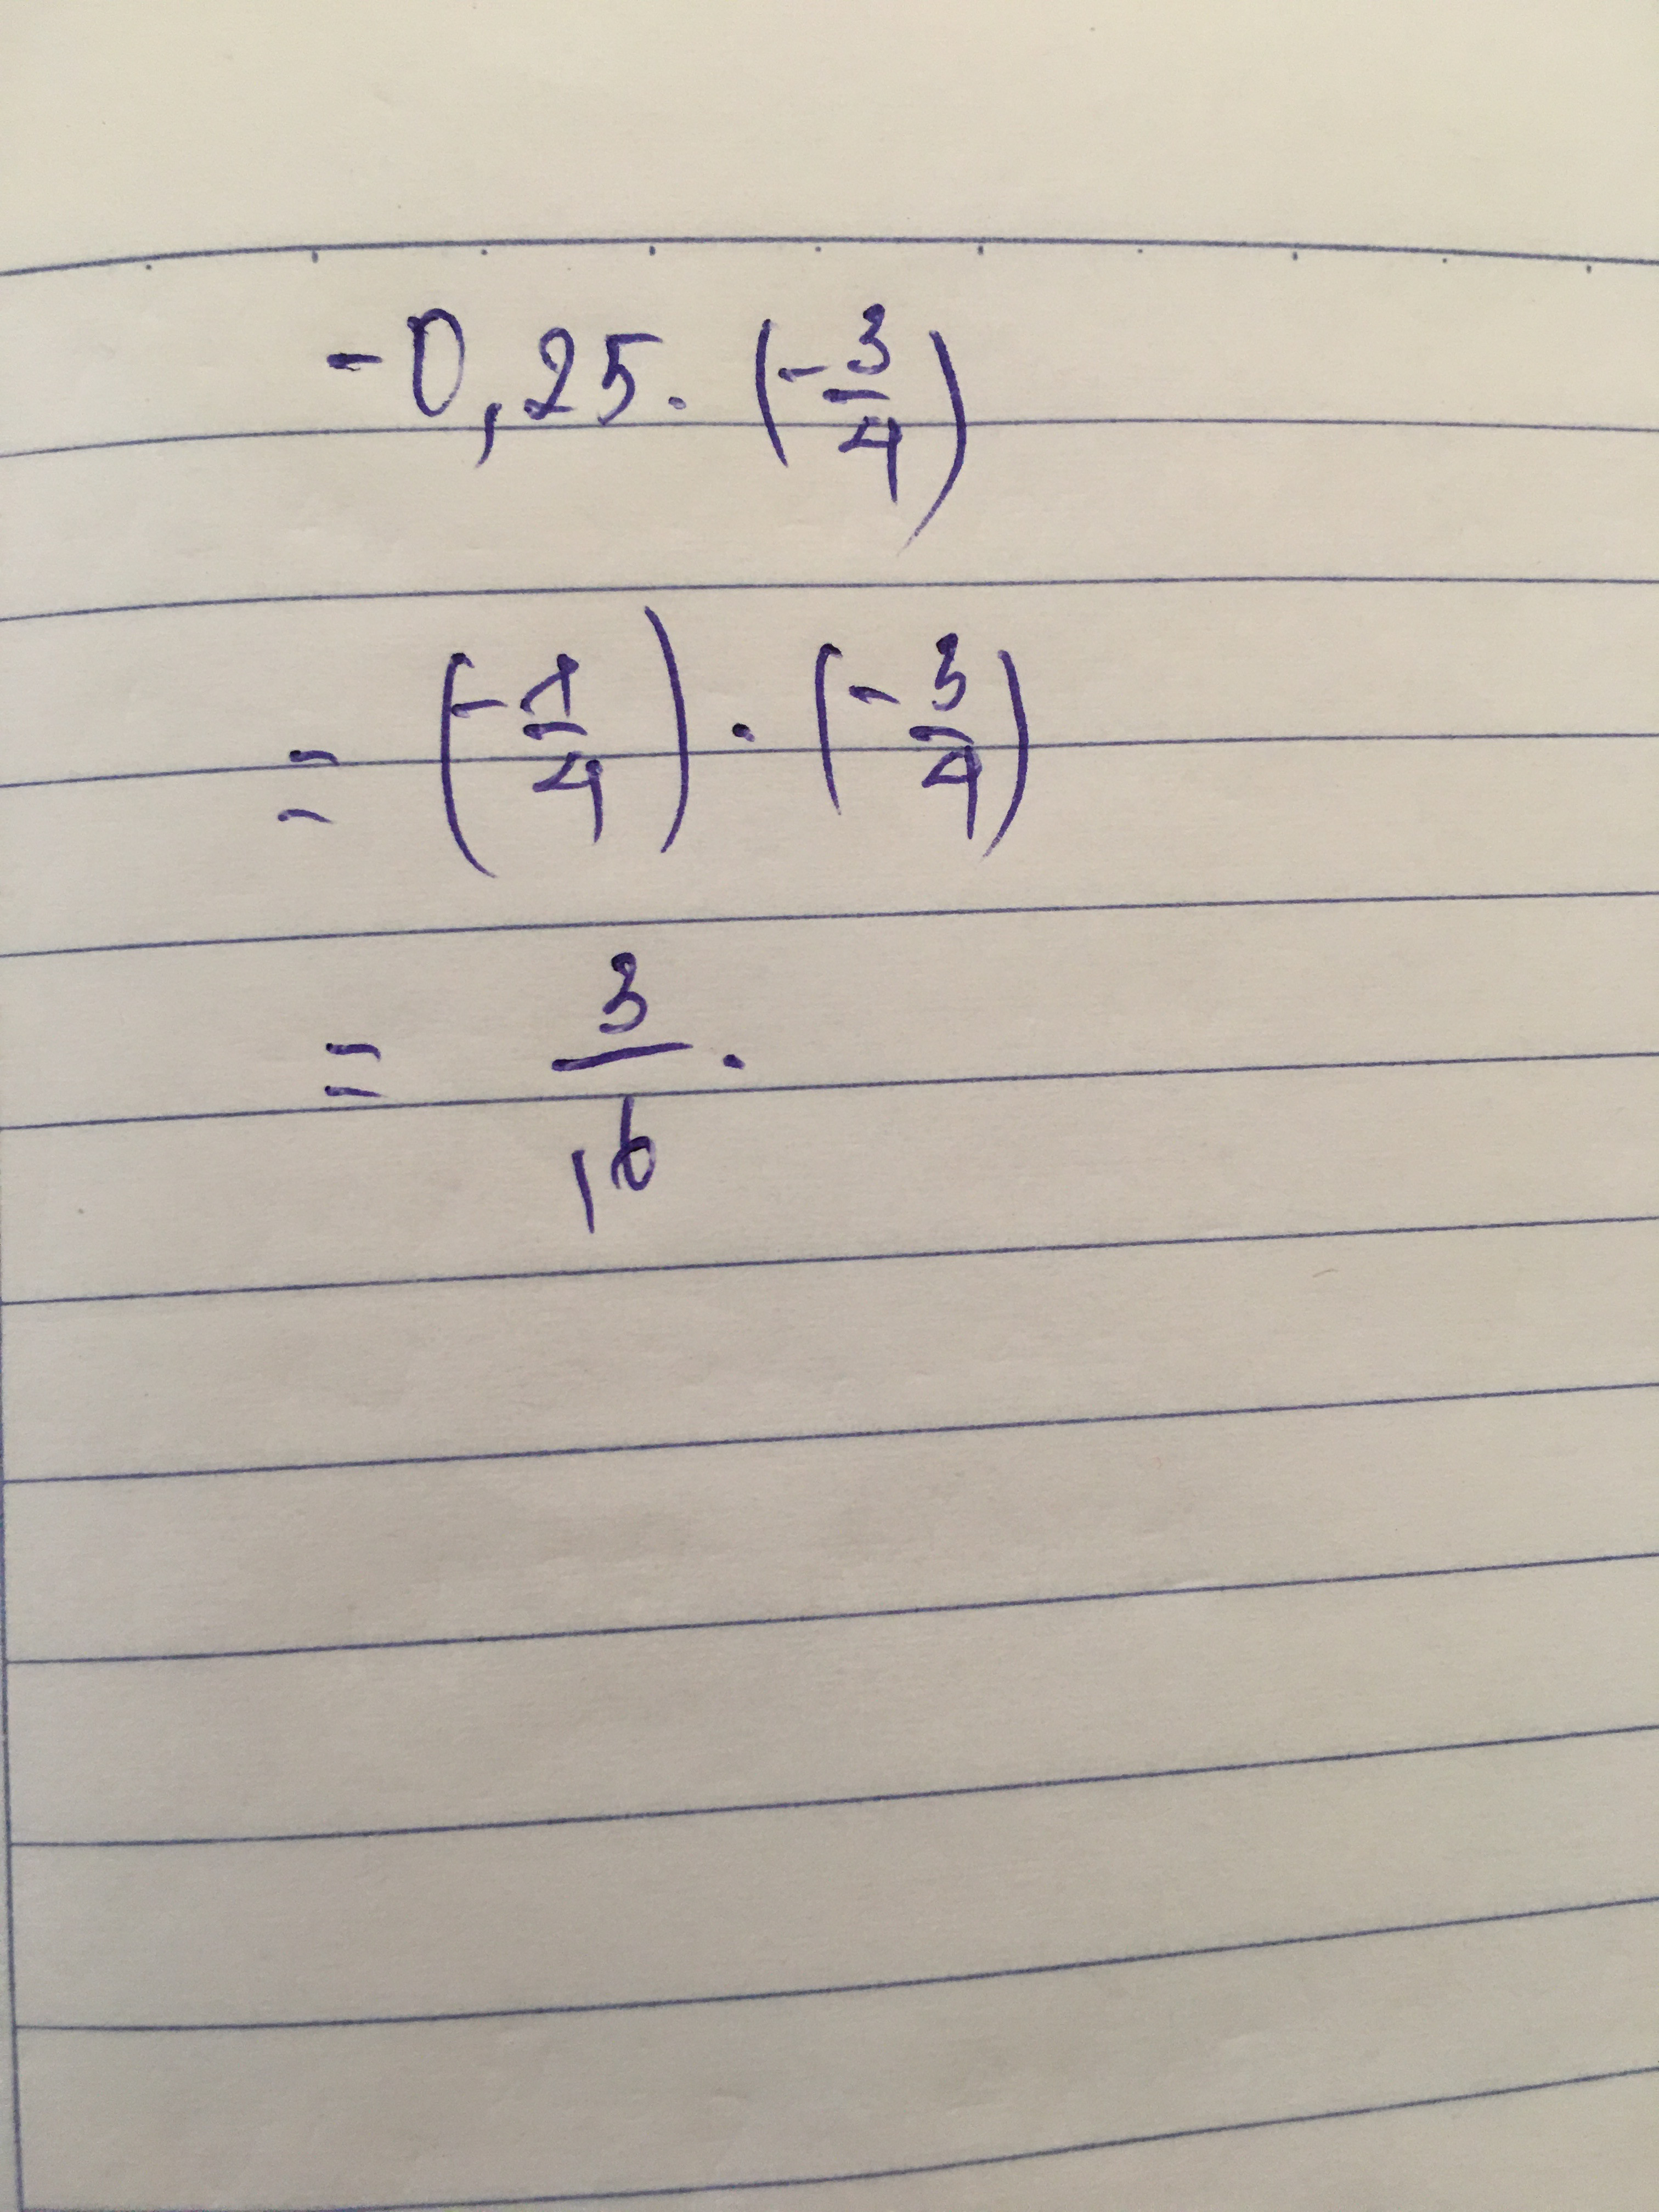 -0,25. (-3/4)
= (-1/4) . (-3/4)
= 3/16 .